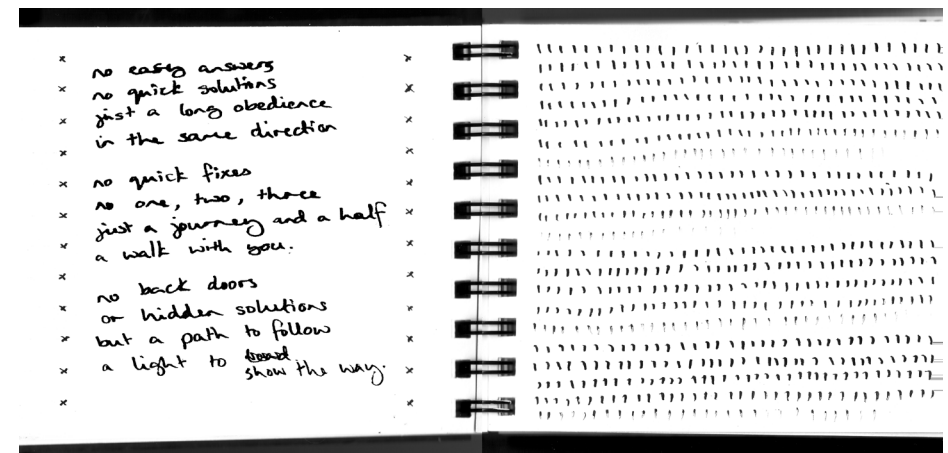 no easy answers
no quick solutions
just a long obedience
in the same direction
no quick fixes
no one, two, three
just a journey and a half
a walk with you.
no back doors
or hidden solutions
but a path to follow
a light to
show the way.